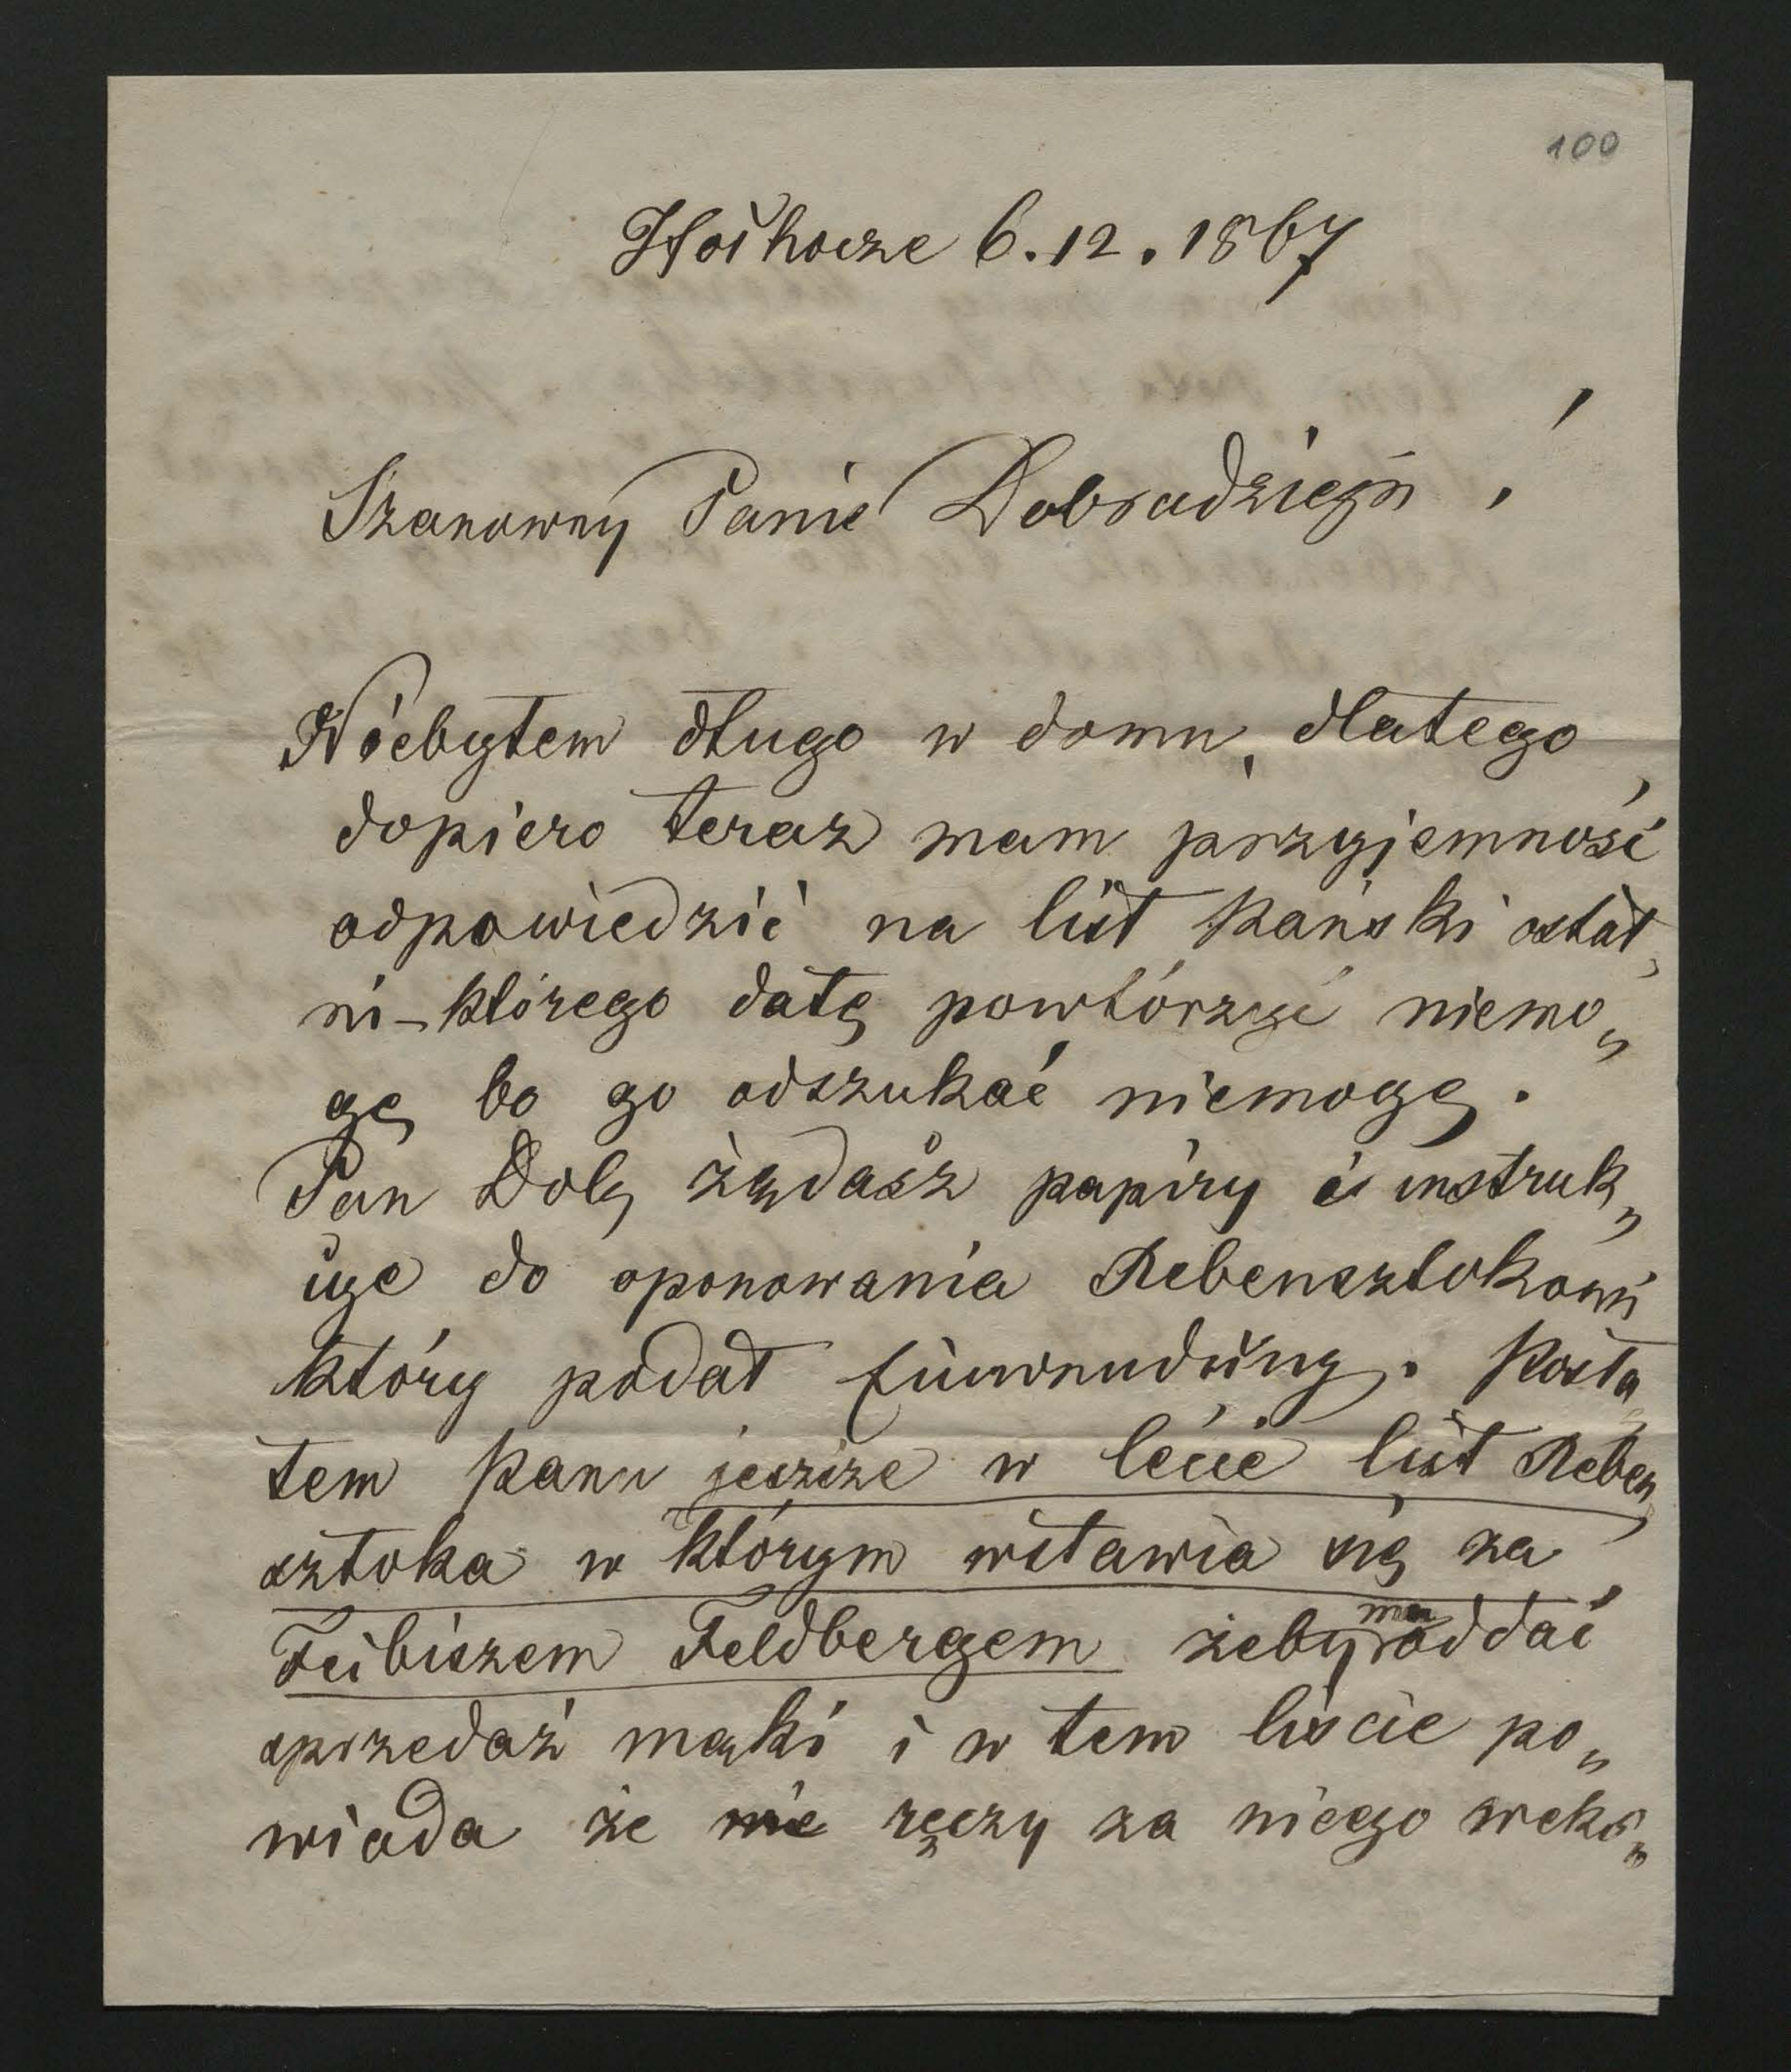 100
Hoihocze 6.12.1867
Szanowny Panie Dobrodzieju!
Niebyłem długo w domu, dlatego
dopiero teraz mam przyjemność
odpowiedzić na list Pański ostat„
ni – którego datę powtórzyć niemo„
gę bo go odszukać niemogę.
Pan Dob, żądasz papiry i instruk„
cye do oponowania Rebensztokowi
który podał Einwendung. Posła„
łem Panu jeszcze w lécie list Reben„
sztoka w którym wstawia się za
Feibiszem Feldbergem żeby mu oddać
sprzedaż mąki i w tem liscie po„
wiada że nie ręczy za niego weks„